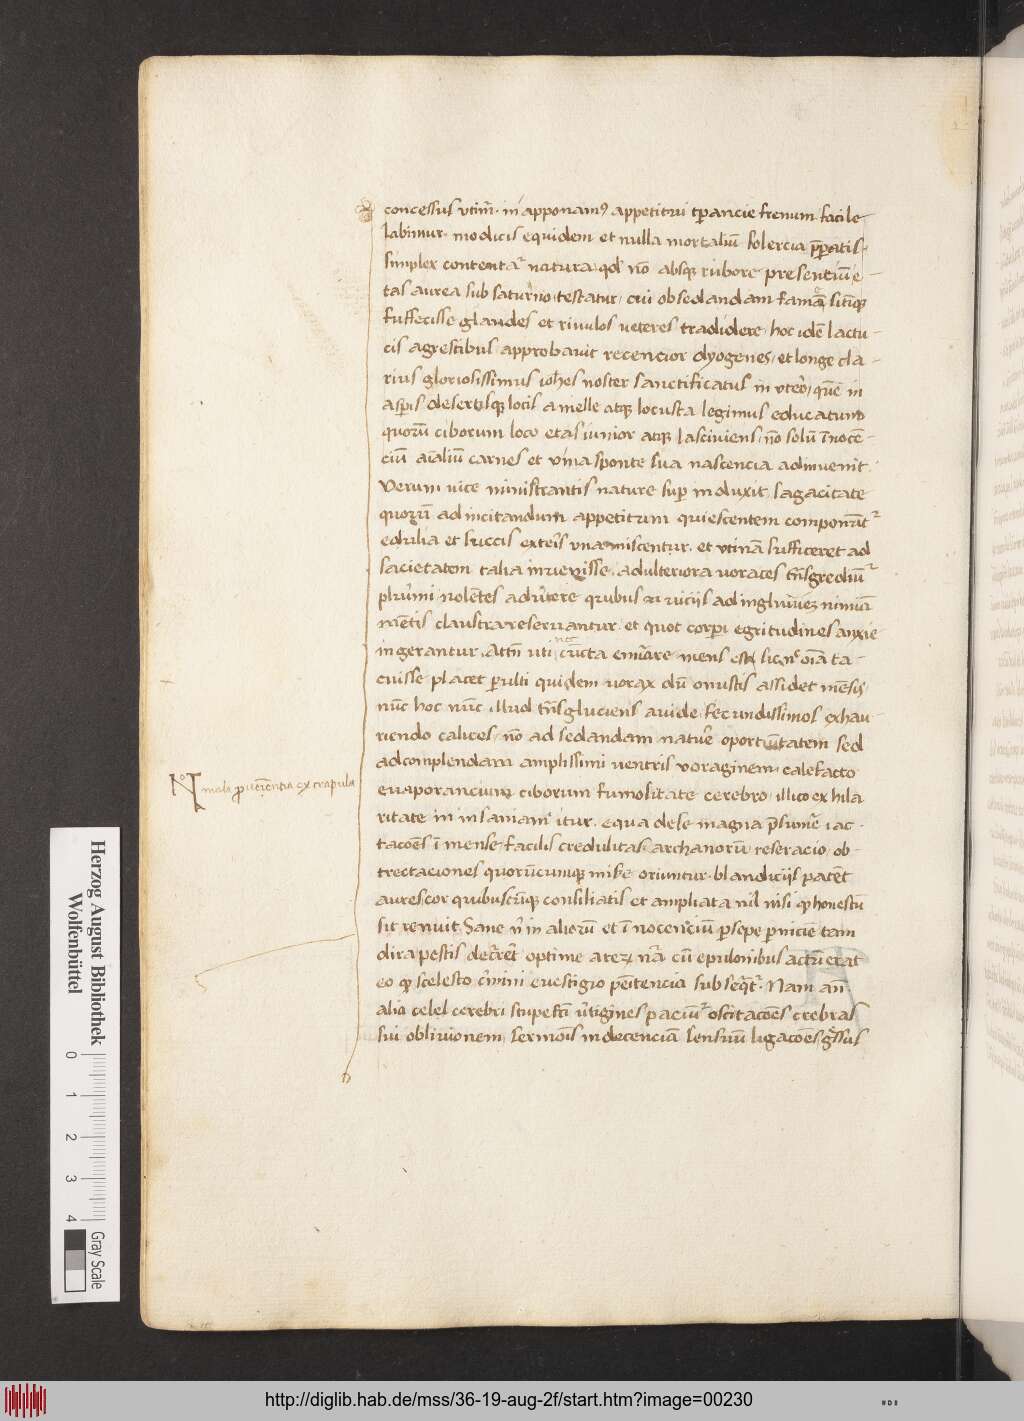 concessus utim̄. in apponam⁹ appetitui tp̄ancie frenum facile
labimur. modicis equidem et nulla mortaliū solercia p̄paratis
simplex contenta natura. qd' nō absq; rubore presentiū e-
tas aurea sub saturno testatur, cui ob sedandam famē sitimq;
suffecisse glandes et rivulos veteres tradidere. hoc idē lactu-
cis agrestibus approbavit recencior dyogenes, et longe cla-
rius gloriosissimus ioh̄es noster sanctificatus in utero, quē in
asp̄is desertisq; locis a melle atq; locusta legimus educatum
quorū ciborum loco etas iunior atq; lasciviens, nō solū īnocē-
ciū aīaliū carnes et vina sponte sua nascencia adinvenit.
Verum vice ministrantis nature sup̄induxit sagacitate
quorū ad incitandum appetitum quiescentem componūt
edulia et succis exteris una miscentur. et utinā sufficeret ad
sacietatem talia invenisse. ad ulteriora voraces tn̄sgrediūt
plurimi nolētes advertere quibus viciis ad ingluviēz nimiā
mētis claustra reservantur. et quot corpi egritudines anxie
ingerantur. Attn̄ uti cūcta
cuisse placet quidem vorax dū onustis assidet mēsis
nūc hoc nūc illud tn̄sgluciens avide. fecundissimos exhau-
riendo calices, nō ad sedandam nature oportūitatem sed
ad complendam amplissimi ventris voraginem. calefacto
evaporancium ciborum fumositate cerebro, illico ex hila
ritate in insaniam itur. equa de se magna p̄sumere iac-
tacōes īmense facilis credulitas archanorū reseracio, ob-
trectaciones quorūcumq; oriuntur. blandiciis patēt
aures cor quibuscūq; consiliatis et ampliata nil nisi qp honestū
sit renuit. Sane in alterū et īnocenciū p̄sepe p̄niciē tam
dira pestis optime cū epulonibus actū erat
eo qp scelesto crimini evestigio pēitencia subseq̄t. Nam
alia cerebri stupefcī v̄tigines oscitacōes crebras
sui oblivionem, sermōis indecenciā sensuū ligacōes
Nº mala p̄veniencia ex crapula
Herzog August Bibliothek
Wolfenbüttel
0 1 2 3 4
Gray Scale
http://diglib.hab.de/mss/36-19-aug-2f/start.htm?image=00230